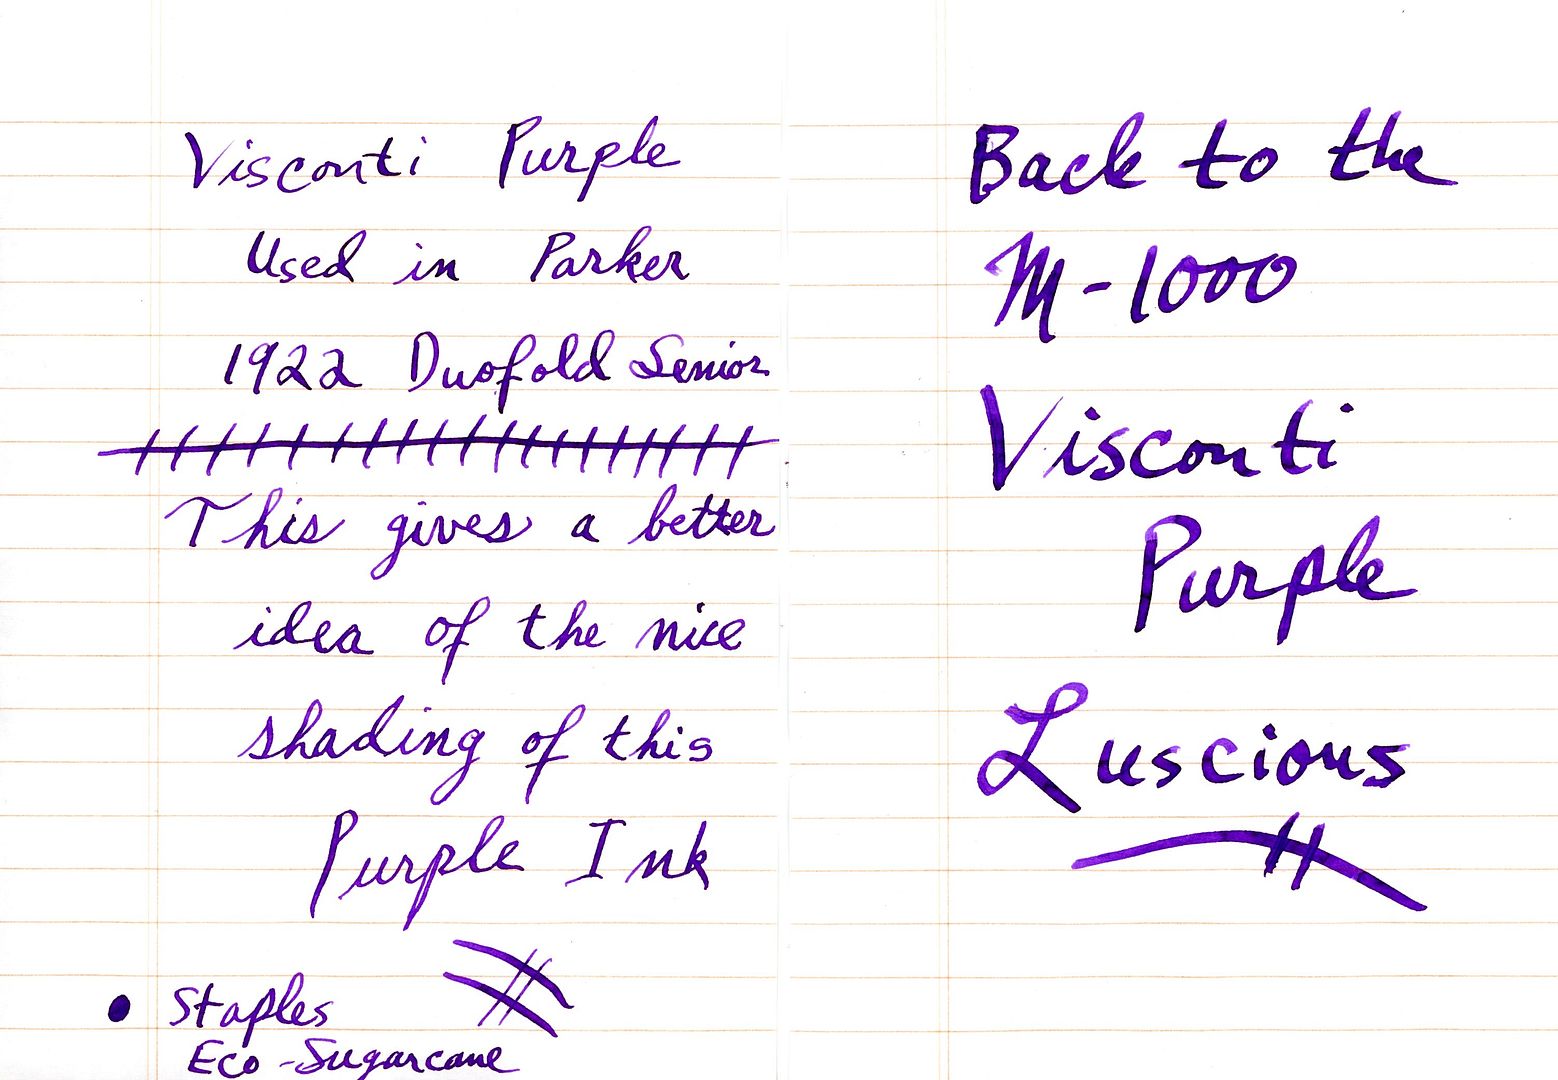 Visconti Purple
Used in Parker
1922 Duofold Senior
This gives a better
idea of the nice
shading of this
Purple Ink
Staples
Eco-Sugarcane
Back to the
M-1000
Visconti
Purple
Luscious